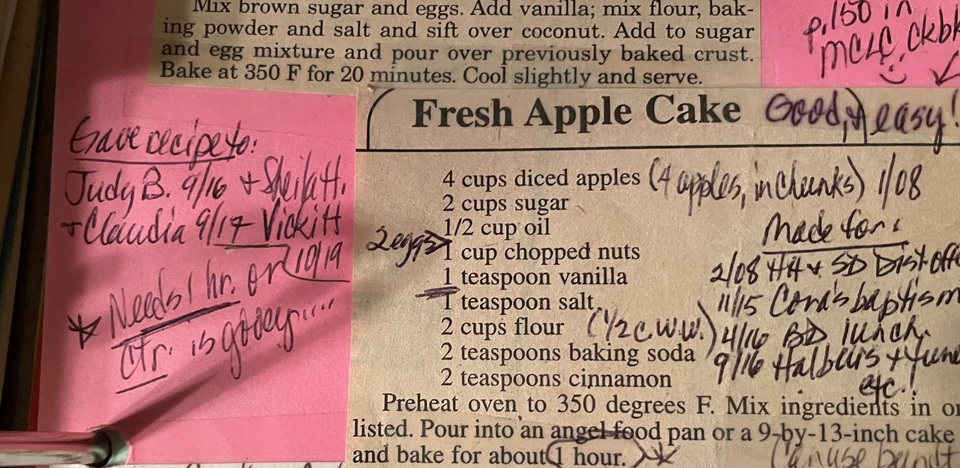 Mix brown sugar and eggs. Add vanilla; mix flour, bak-
ing powder and salt and sift over coconut. Add to sugar
and egg mixture and pour over previously baked crust.
Bake at 350 F for 20 minutes. Cool slightly and serve.
p.150 in
MCLC ckbk
Fresh Apple Cake Good, & easy!
Gave recipe to:
Judy B. 9/16 + Sheila H.
+ Claudia 9/17 Vicki H
10/19
* Needs 1 hr. or
ctr. is gooey....
4 cups diced apples (4 apples, in chunks) 1/08
2 cups sugar
1/2 cup oil
2 eggs >
1 cup chopped nuts
1 teaspoon vanilla
1 teaspoon salt
2 cups flour (1/2 c. w.w.)
2 teaspoons baking soda
2 teaspoons cinnamon
Made for:
2/08 HH + SD Dist off
11/15 Cora's baptism
4/16 BD lunch
9/16 Halburs +
etc.!
Preheat oven to 350 degrees F. Mix ingredients in or
listed. Pour into an angel food pan or a 9-by-13-inch cake
and bake for about 1 hour. *
Can use bundt